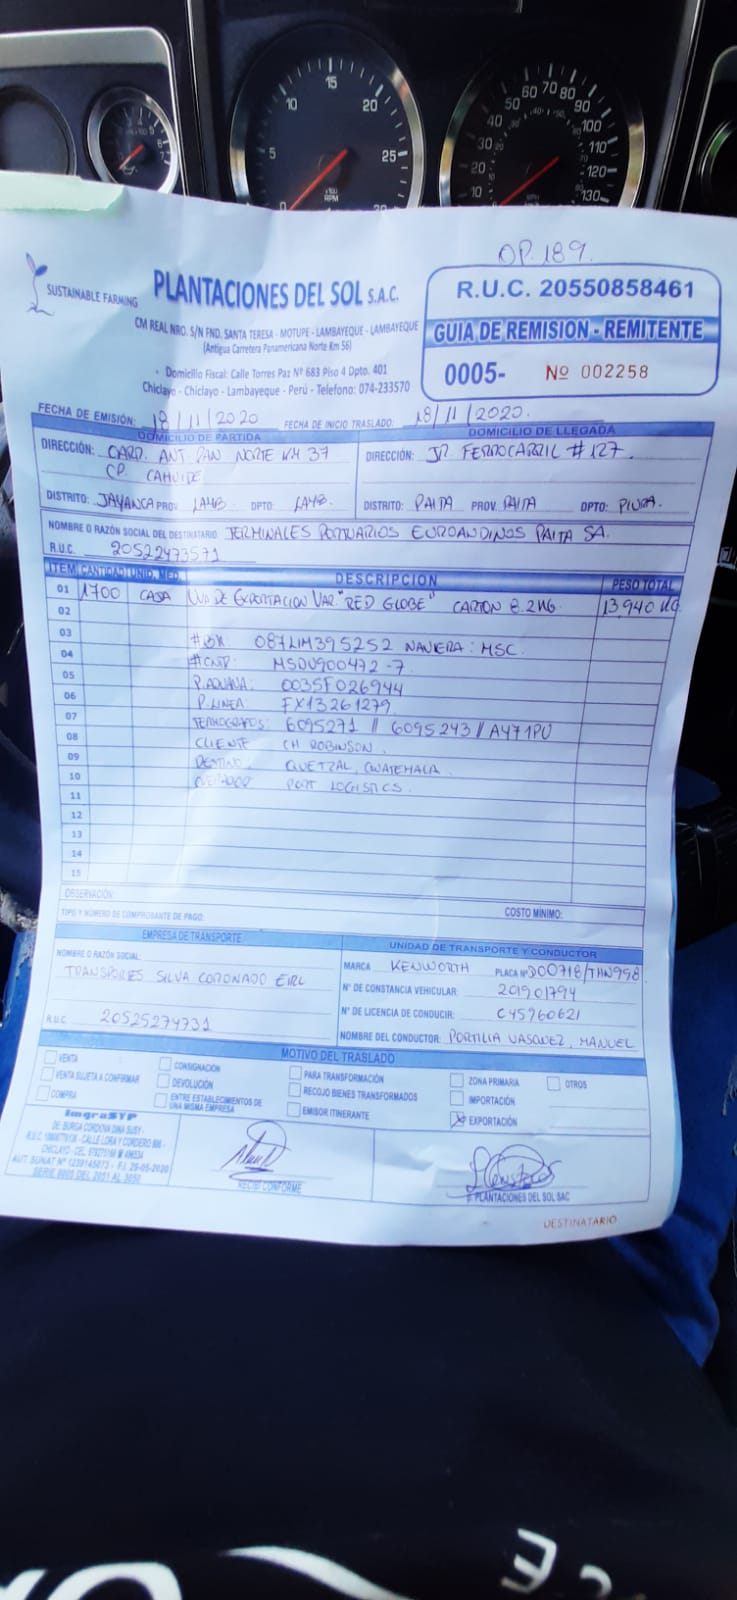 5
10
15
20
25
x100
RPM
10
20
30
40
50
60
70
80
90
100
110
120
130
OP. 189.
SUSTAINABLE FARMING
PLANTACIONES DEL SOL S.A.C.
CM REAL NRO. S/N FND. SANTA TERESA - MOTUPE - LAMBAYEQUE - LAMBAYEQUE
(Antigua Carretera Panamericana Norte Km 56)
• Domicilio Fiscal: Calle Torres Paz Nº 683 Piso 4 Dpto. 401
Chiclayo - Chiclayo - Lambayeque - Perú - Telefono: 074-233570
R.U.C. 20550858461
GUIA DE REMISION - REMITENTE
0005- Nº 002258
FECHA DE EMISIÓN: 18/11/2020 FECHA DE INICIO TRASLADO: 18/11/2020.
DOMICILIO DE PARTIDA
DIRECCIÓN: CARR. ANT. PAN NORTE KM 37
CP. CAHUIDE
DISTRITO: JAYANCA PROV. LAMB. DPTO: LAMB.
DOMICILIO DE LLEGADA
DIRECCIÓN: JR FERROCARRIL # 127.
DISTRITO: PAITA PROV. PAITA DPTO: PIURA.
NOMBRE O RAZÓN SOCIAL DEL DESTINATARIO TERMINALES PORTUARIOS EUROANDINOS PAITA SA.
R.U.C. 20522473571
ITEM CANTIDAD UNID. MED. DESCRIPCION PESO TOTAL
01 1700 CAJA UVA DE EXPORTACION VAR. "RED GLOBE" CARTON 8.2 KG. 13,940 KG
02
03 # BK: 087LIM395252 NAVIERA: MSC.
04 # CNTR: MSDU900472-7
05 P. ADUANA: 0035F026944
06 P. LINEA: FX13261279
07 TERMOGRAFOS: 6095271 // 6095243 // A471PU
08 CLIENTE CH ROBINSON
09 DESTINO QUETZAL, GUATEMALA
10 OPERADOR PORT LOGISTICS.
11
12
13
14
15
OBSERVACIÓN:
TIPO Y NÚMERO DE COMPROBANTE DE PAGO: COSTO MÍNIMO:
EMPRESA DE TRANSPORTE
NOMBRE O RAZÓN SOCIAL:
TRANSPORTES SILVA CORONADO EIRL
R.U.C. 20525274731
UNIDAD DE TRANSPORTE Y CONDUCTOR
MARCA KENWORTH PLACA Nº D00718/THN998
N° DE CONSTANCIA VEHICULAR: 201901794
N° DE LICENCIA DE CONDUCIR: C45960621
NOMBRE DEL CONDUCTOR: PORTILLA VASQUEZ, MANUEL
MOTIVO DEL TRASLADO
VENTA
VENTA SUJETA A CONFIRMAR
COMPRA
CONSIGNACIÓN
DEVOLUCIÓN
ENTRE ESTABLECIMIENTOS DE
UNA MISMA EMPRESA
PARA TRANSFORMACIÓN
RECOJO BIENES TRANSFORMADOS
EMISOR ITINERANTE
ZONA PRIMARIA
IMPORTACIÓN
EXPORTACIÓN
OTROS
ImgraSYP
DE: BURGA CORDOVA DINA SUSY -
CHICLAYO
AUT. SUNAT Nº 1239145073 - F.I. 29-05-2020
SERIE 0005 DEL 2051 AL 3050
RECIBI CONFORME
P. PLANTACIONES DEL SOL SAC
DESTINATARIO